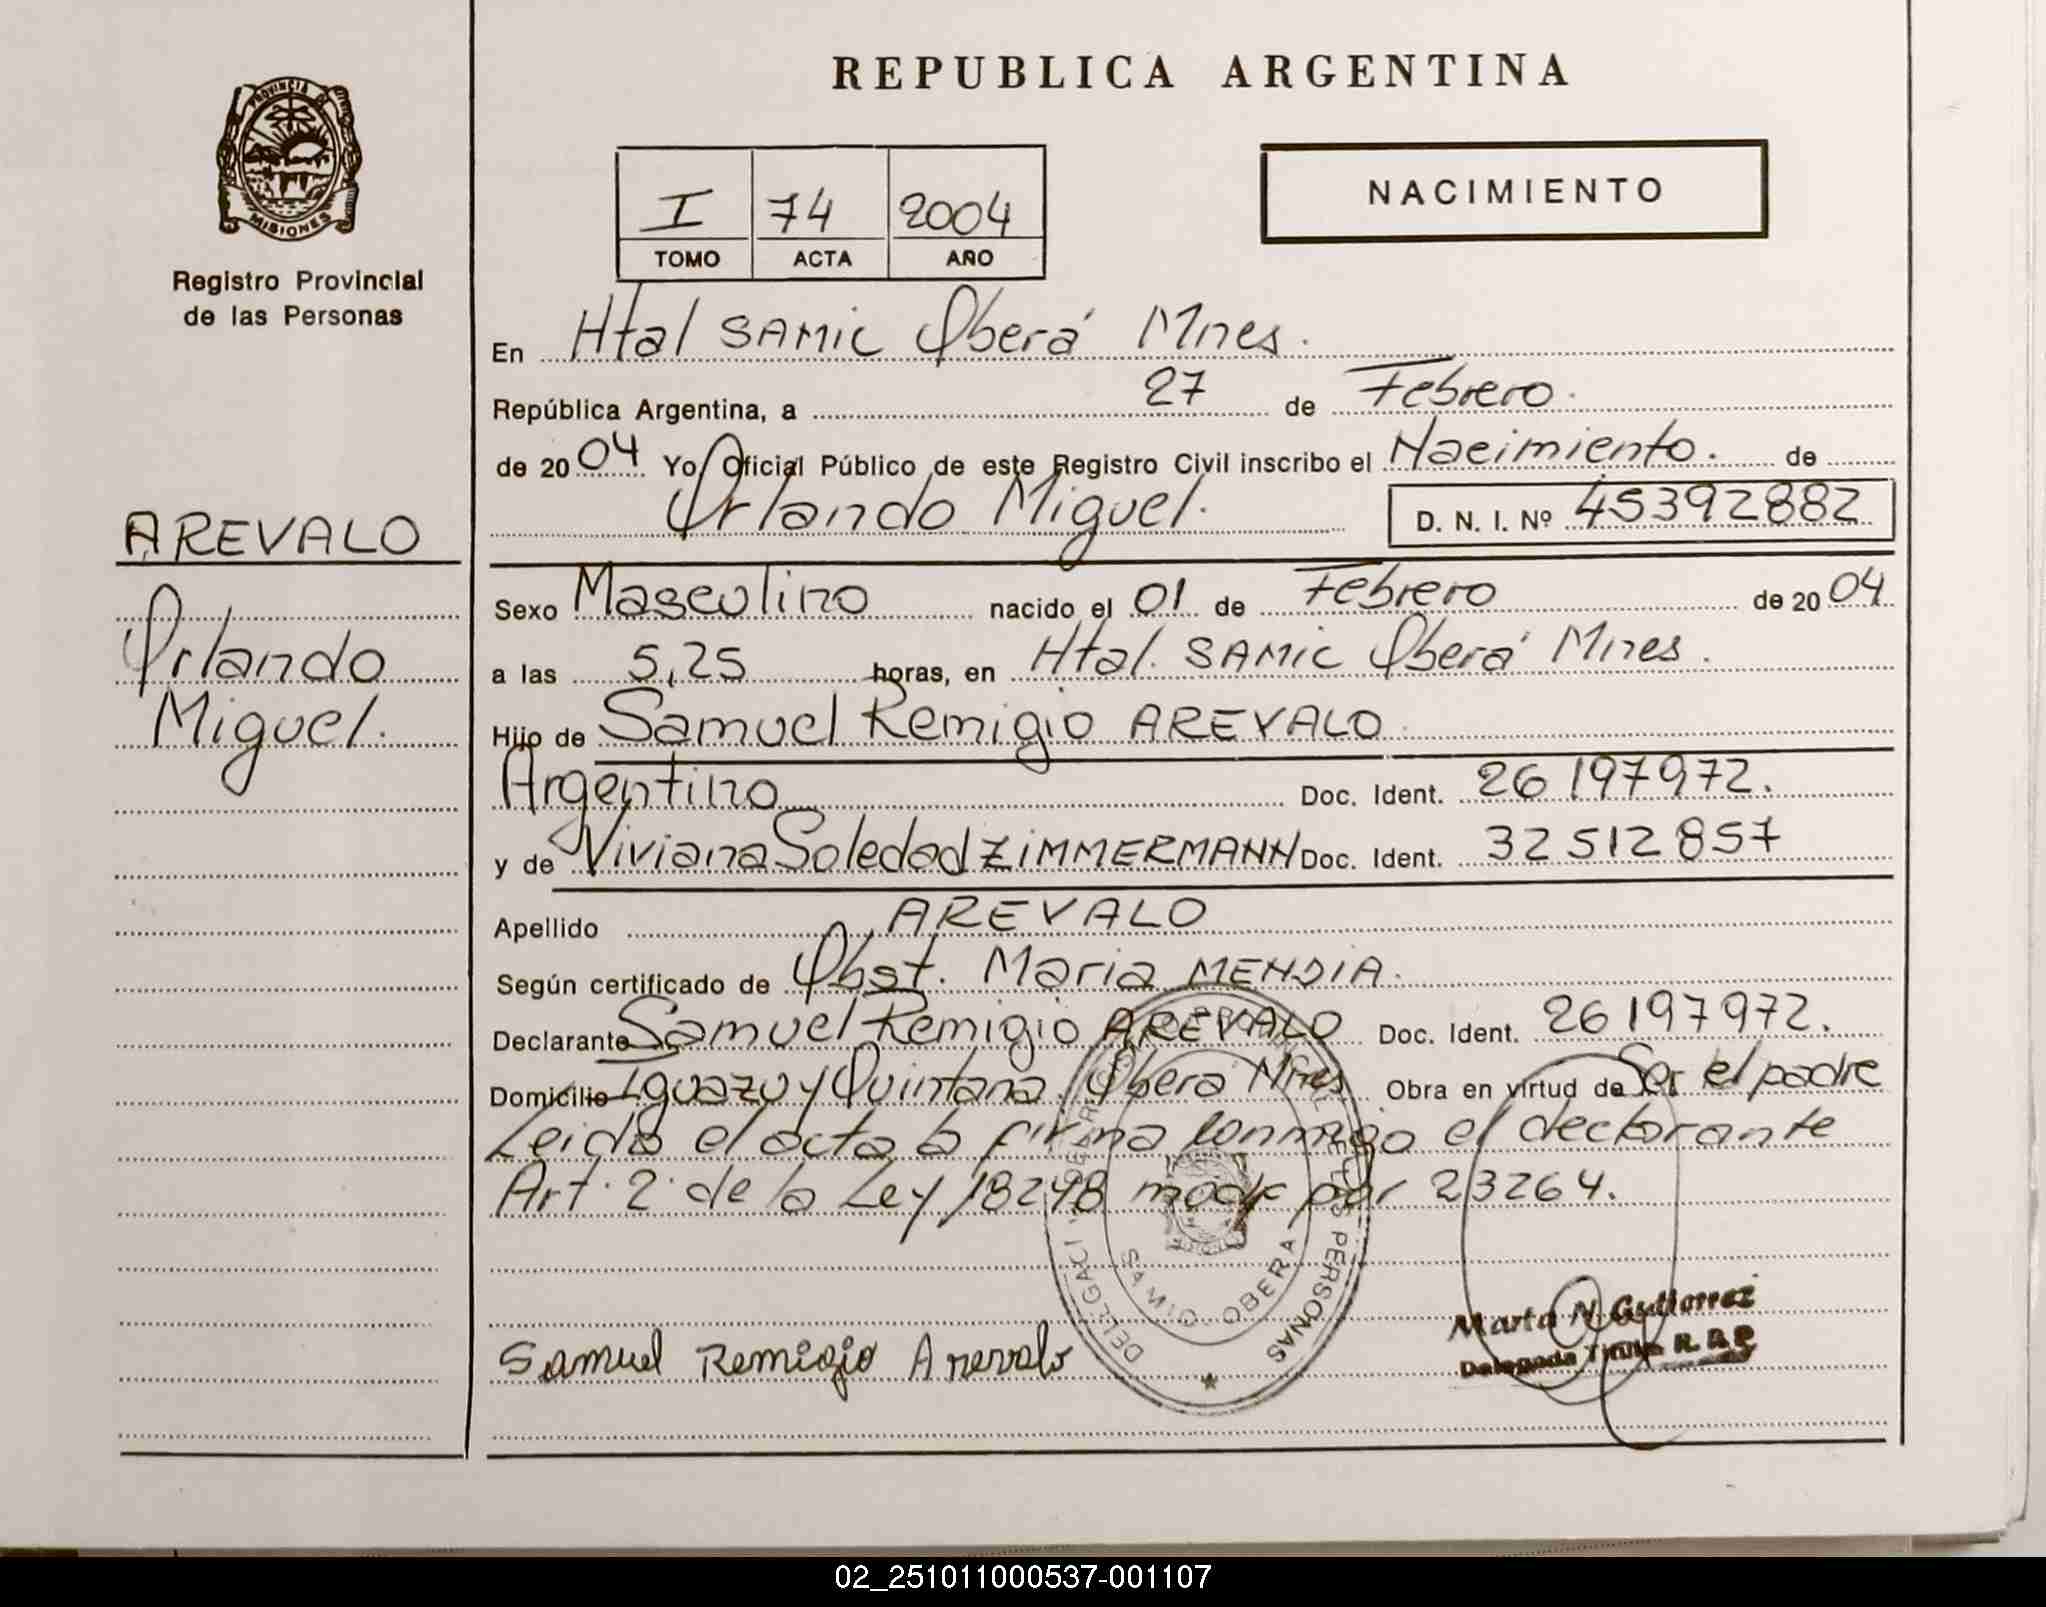 REPUBLICA ARGENTINA
PROVINCIA DE
MISIONES
Registro Provincial
de las Personas
I 74 2004
TOMO ACTA AÑO
NACIMIENTO
En Htal SAMIC Oberá Mnes.
República Argentina, a 27 de Febrero.
de 2004 Yo Oficial Público de este Registro Civil inscribo el Nacimiento. de
Orlando Miguel. D. N. I. Nº 45392882
AREVALO
Orlando
Miguel.
Sexo Masculino nacido el 01 de Febrero de 2004
a las 5,25 horas, en Htal. SAMIC Oberá Mnes.
Hijo de Samuel Remigio AREVALO
Argentino Doc. Ident. 26 197972.
y de Viviana Soledad ZIMMERMANN Doc. Ident. 32 512 857
Apellido AREVALO
Según certificado de Obst. Maria MENDIA.
Declarante Samuel Remigio AREVALO Doc. Ident. 26 197972.
Domicilio Iguazu y Quintana. Obera Mnes Obra en virtud de Ser el padre
Leida el acta la firma conmigo el declarante
Art. 2 de la Ley 18248 modif por 23264.
PERSONAS
SAMIC OBERA
Samuel Remigio Arevalo
Marta N. Gutierrez
Delegada Titular R. P. P.
02_251011000537-001107